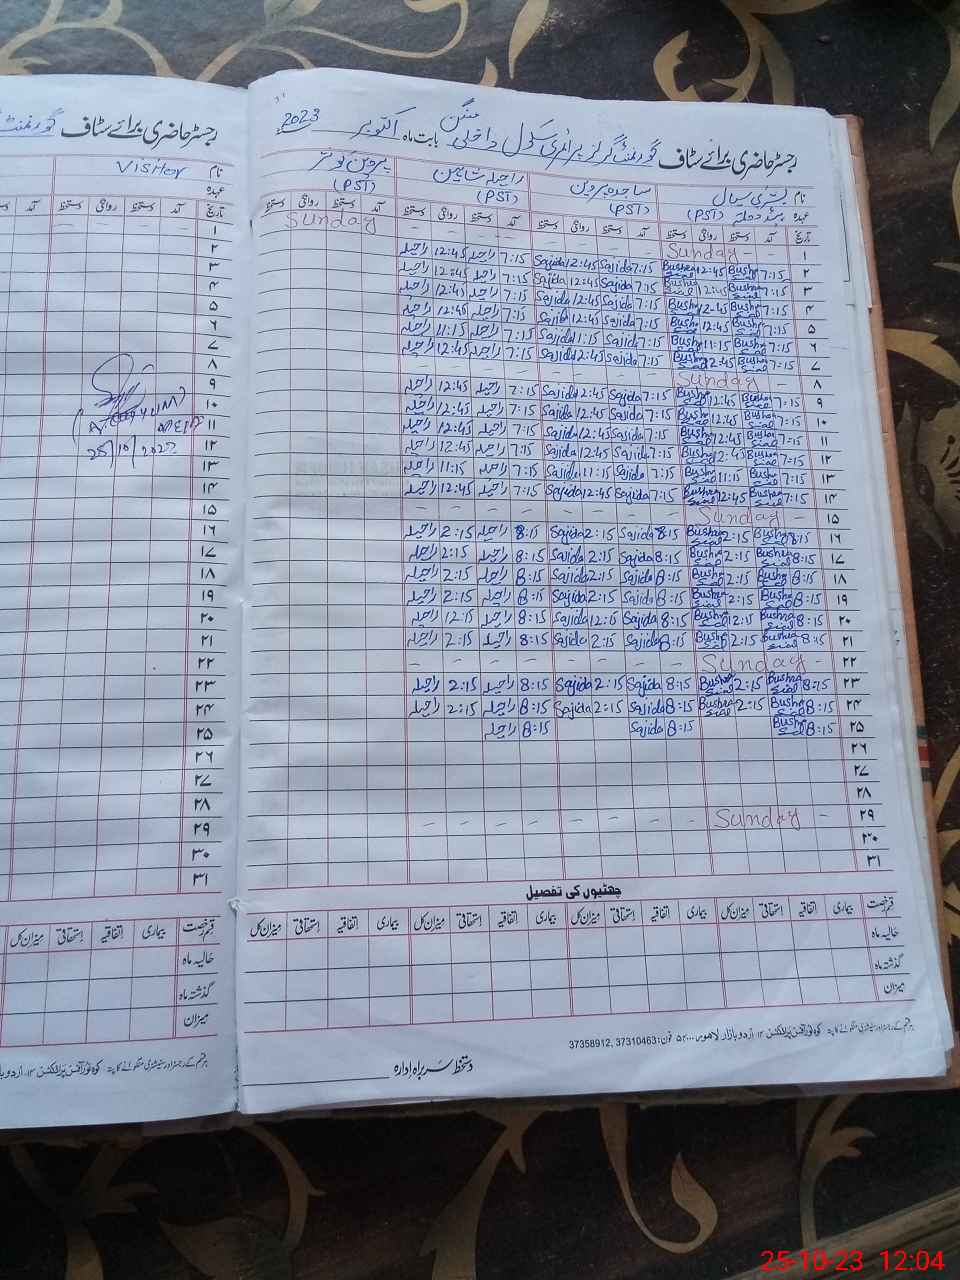 رجسٹر حاضری برائے سٹاف گورنمنٹ گرلز پرائمری سکول داخلی بابت ماہ اکتوبر 2023
نام بشریٰ سیال ساجدہ پروین راحیلہ شاہین پروین کوثر
عہدہ (PST) (PST) (PST) (PST)
تاریخ آمد دستخط روانگی دستخط آمد دستخط روانگی دستخط آمد دستخط روانگی دستخط آمد دستخط روانگی دستخط
۱ Sunday - - - - - - - - Sunday
۲ 7:15 Bushra Sial 12:45 Bushra Sial 7:15 Sajida 12:45 Sajida 7:15 راحیلہ 12:45 راحیلہ
۳ 7:15 Bushra Sial 12:45 Bushra Sial 7:15 Sajida 12:45 Sajida 7:15 راحیلہ 12:45 راحیلہ
۴ 7:15 Bushra Sial 12:45 Bushra Sial 7:15 Sajida 12:45 Sajida 7:15 راحیلہ 12:45 راحیلہ
۵ 7:15 Bushra Sial 12:45 Bushra Sial 7:15 Sajida 12:45 Sajida 7:15 راحیلہ 12:45 راحیلہ
۶ 7:15 Bushra Sial 11:15 Bushra Sial 7:15 Sajida 11:15 Sajida 7:15 راحیلہ 11:15 راحیلہ
۷ 7:15 Bushra Sial 12:45 Bushra Sial 7:15 Sajida 12:45 Sajida 7:15 راحیلہ 12:45 راحیلہ
۸ Sunday
۹ 7:15 Bushra Sial 12:45 Bushra Sial 7:15 Sajida 12:45 Sajida 7:15 راحیلہ 12:45 راحیلہ
۱۰ 7:15 Bushra Sial 12:45 Bushra Sial 7:15 Sajida 12:45 Sajida 7:15 راحیلہ 12:45 راحیلہ
۱۱ 7:15 Bushra Sial 12:45 Bushra Sial 7:15 Sajida 12:45 Sajida 7:15 راحیلہ 12:45 راحیلہ
۱۲ 7:15 Bushra Sial 12:45 Bushra Sial 7:15 Sajida 12:45 Sajida 7:15 راحیلہ 12:45 راحیلہ
۱۳ 7:15 Bushra Sial 11:15 Bushra Sial 7:15 Sajida 11:15 Sajida 7:15 راحیلہ 11:15 راحیلہ
۱۴ 7:15 Bushra Sial 12:45 Bushra Sial 7:15 Sajida 12:45 Sajida 7:15 راحیلہ 12:45 راحیلہ
۱۵ Sunday
۱۶ 8:15 Bushra Sial 2:15 Bushra Sial 8:15 Sajida 2:15 Sajida 8:15 راحیلہ 2:15 راحیلہ
۱۷ 8:15 Bushra Sial 2:15 Bushra Sial 8:15 Sajida 2:15 Sajida 8:15 راحیلہ 2:15 راحیلہ
۱۸ 8:15 Bushra Sial 2:15 Bushra Sial 8:15 Sajida 2:15 Sajida 8:15 راحیلہ 2:15 راحیلہ
۱۹ 8:15 Bushra Sial 2:15 Bushra Sial 8:15 Sajida 2:15 Sajida 8:15 راحیلہ 2:15 راحیلہ
۲۰ 8:15 Bushra Sial 12:15 Bushra Sial 8:15 Sajida 12:15 Sajida 8:15 راحیلہ 12:15 راحیلہ
۲۱ 8:15 Bushra Sial 2:15 Bushra Sial 8:15 Sajida 2:15 Sajida 8:15 راحیلہ 2:15 راحیلہ
۲۲ Sunday
۲۳ 8:15 Bushra Sial 2:15 Bushra Sial 8:15 Sajida 2:15 Sajida 8:15 راحیلہ 2:15 راحیلہ
۲۴ 8:15 Bushra Sial 2:15 Bushra Sial 8:15 Sajida 2:15 Sajida 8:15 راحیلہ 2:15 راحیلہ
۲۵ 8:15 Bushra Sial 8:15 Sajida 8:15 راحیلہ
۲۶
۲۷
۲۸
۲۹ Sunday
۳۰
۳۱
چھٹیوں کی تفصیل
قسم رخصت بیماری اتفاقیہ استحقاقی میزان کل بیماری اتفاقیہ استحقاقی میزان کل بیماری اتفاقیہ استحقاقی میزان کل بیماری اتفاقیہ استحقاقی میزان کل
حالیہ ماہ
گذشتہ ماہ
میزان
37358912, 37310463
دستخط سربراہ ادارہ
رجسٹر حاضری برائے سٹاف گورنمنٹ
نام Visitor
عہدہ
تاریخ آمد دستخط روانگی دستخط
۱
۲
۳
۴
۵
۶
۷
۸
۹
۱۰
۱۱
۱۲
۱۳
۱۴
۱۵
۱۶
۱۷
۱۸
۱۹
۲۰
۲۱
۲۲
۲۳
۲۴
۲۵
۲۶
۲۷
۲۸
۲۹
۳۰
۳۱
25/10/2023
قسم رخصت بیماری اتفاقیہ استحقاقی میزان کل
حالیہ ماہ
گذشتہ ماہ
میزان
25-10-23 12:04